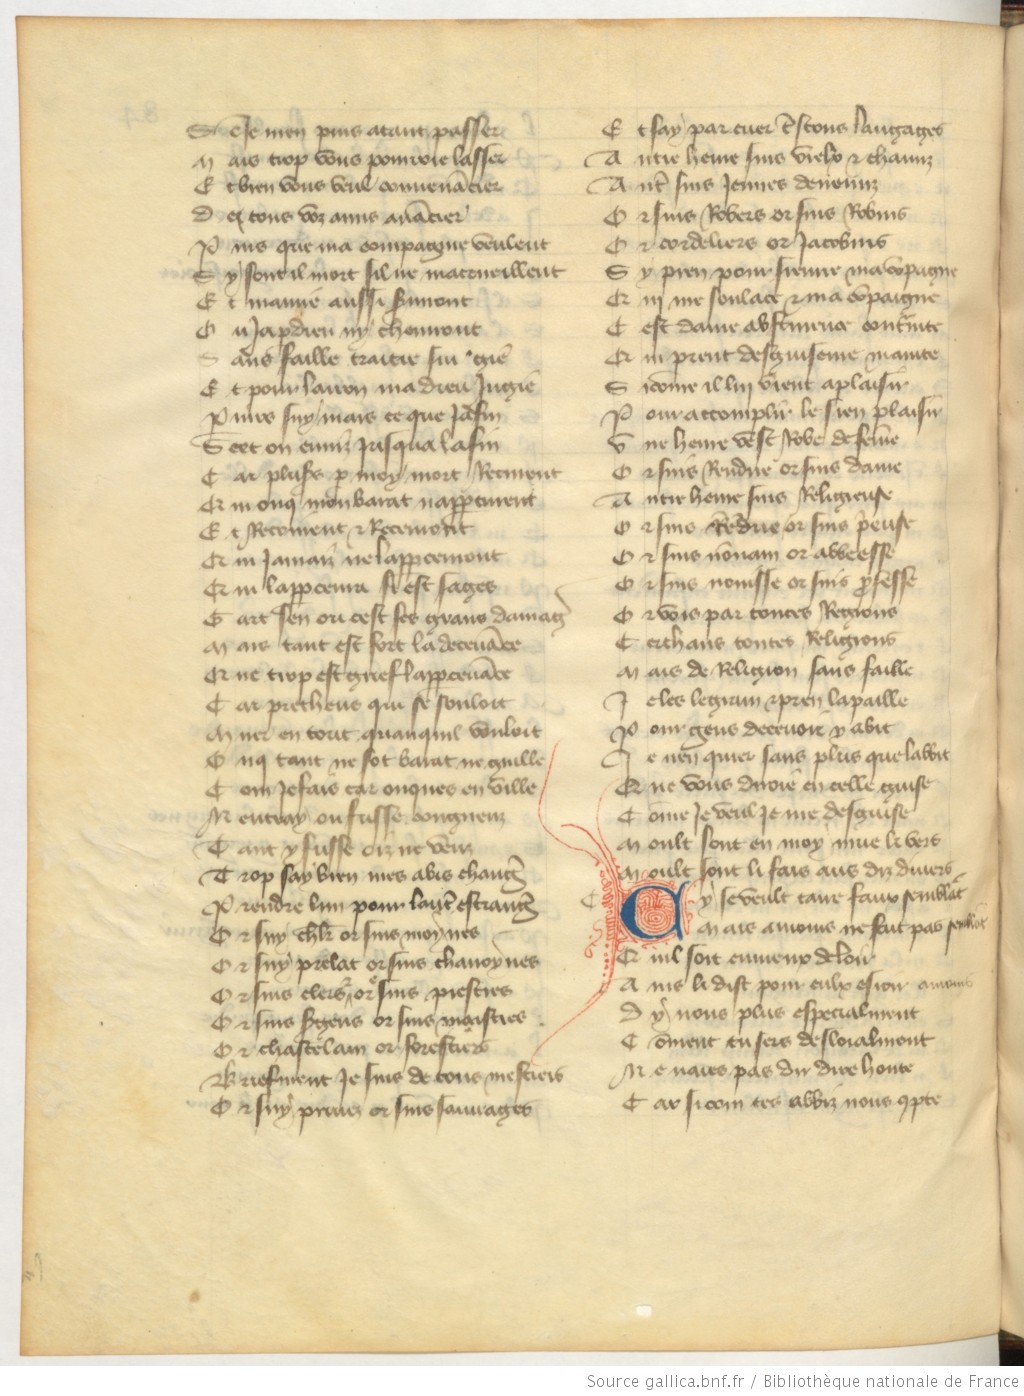 S e Je men puis atant passer
M ais trop vous pourroie lasser
E t bien vous veul convenācier
D e tous voz amis avācier
P uis que ma compaigne veulent
S y sont il mort sil ne macrueillent
E t mamie aussi
O u Ja p dieu ny
S ans faille traitre sui
E t pour larron ma dieu Jugie
P iures suy mais ce que
S cet on
C ar plusrs p moy mort Recurent
Qr
E t Recoiuent & Receuront
Qr ia Jamais ne lappceuront
Qr ia lappceura si est sages
G art sen ou cest ses grans damag
M ais tant est fort la deceuāce
Qr ne trop est grief lappceuāce
C ar protheus qui se souloit
M uer en tout quanquil vouloit
O nq tant ne sot barat ne guille
C om Je fais car onques en ville
N entray ou fusse congneuz
T ant y fusse oiz ne veuz
T rop say bien mes abis changr
P rendre lun pour laut estrangr
O r suy chlr or suis moynes
O r suy prelat or suis chanoynes
O r suis clers or suis prestres
O r suis or suis
O r chastelain or forestiers
Briefment Je suis de tous mestiers
O r suy prince or suis sauvages
E t say par cuer tstous langages
A utre heure suis vielx & chanuz
A ut suis Jeunes devenuz
O r suis Robers or suis Robins
O r cordeliers or Jacobins
S y pren pour sieuure ma cōpagne
Qr ui me soulace & ma cōpaigne
C est dame abstinence
Qr ui prent desguiseure mainte
S icōme il lui vient a plaisir
P our accomplir le sien plaisir
V ne heure vest Robe de feme
O r suis Rendue or suis dame
A utre heure suis Religieuse
O r suis Rēdue or suis prieuse
O r suis nōnain or abbeesse
O r suis nouisse or suis professe
O r vois par toutes Regions
C erchans toutes Religions
M ais de Religion sans faille
J e les le grain & pren la paille
P our gens decevoir y abit
J e nen quier sans plus que labbit
Qr ne vous diroie en celle guise
C ōme Je veul Je me desguise
M oult sont en moy mue li vers
M oult sont li fais aus diz divers
C y se veult taire faux semblāt
M ais amours ne fait pas semblāt
Qr uil soit ennuieux de loir
A ins li dist pour eulx esioir
D y nous plus especialment
C ōment tu sers desloialment
N e naies pas du dire honte
C ar si com tes abbiz nous cpte
Source gallica.bnf.fr / Bibliothèque nationale de France